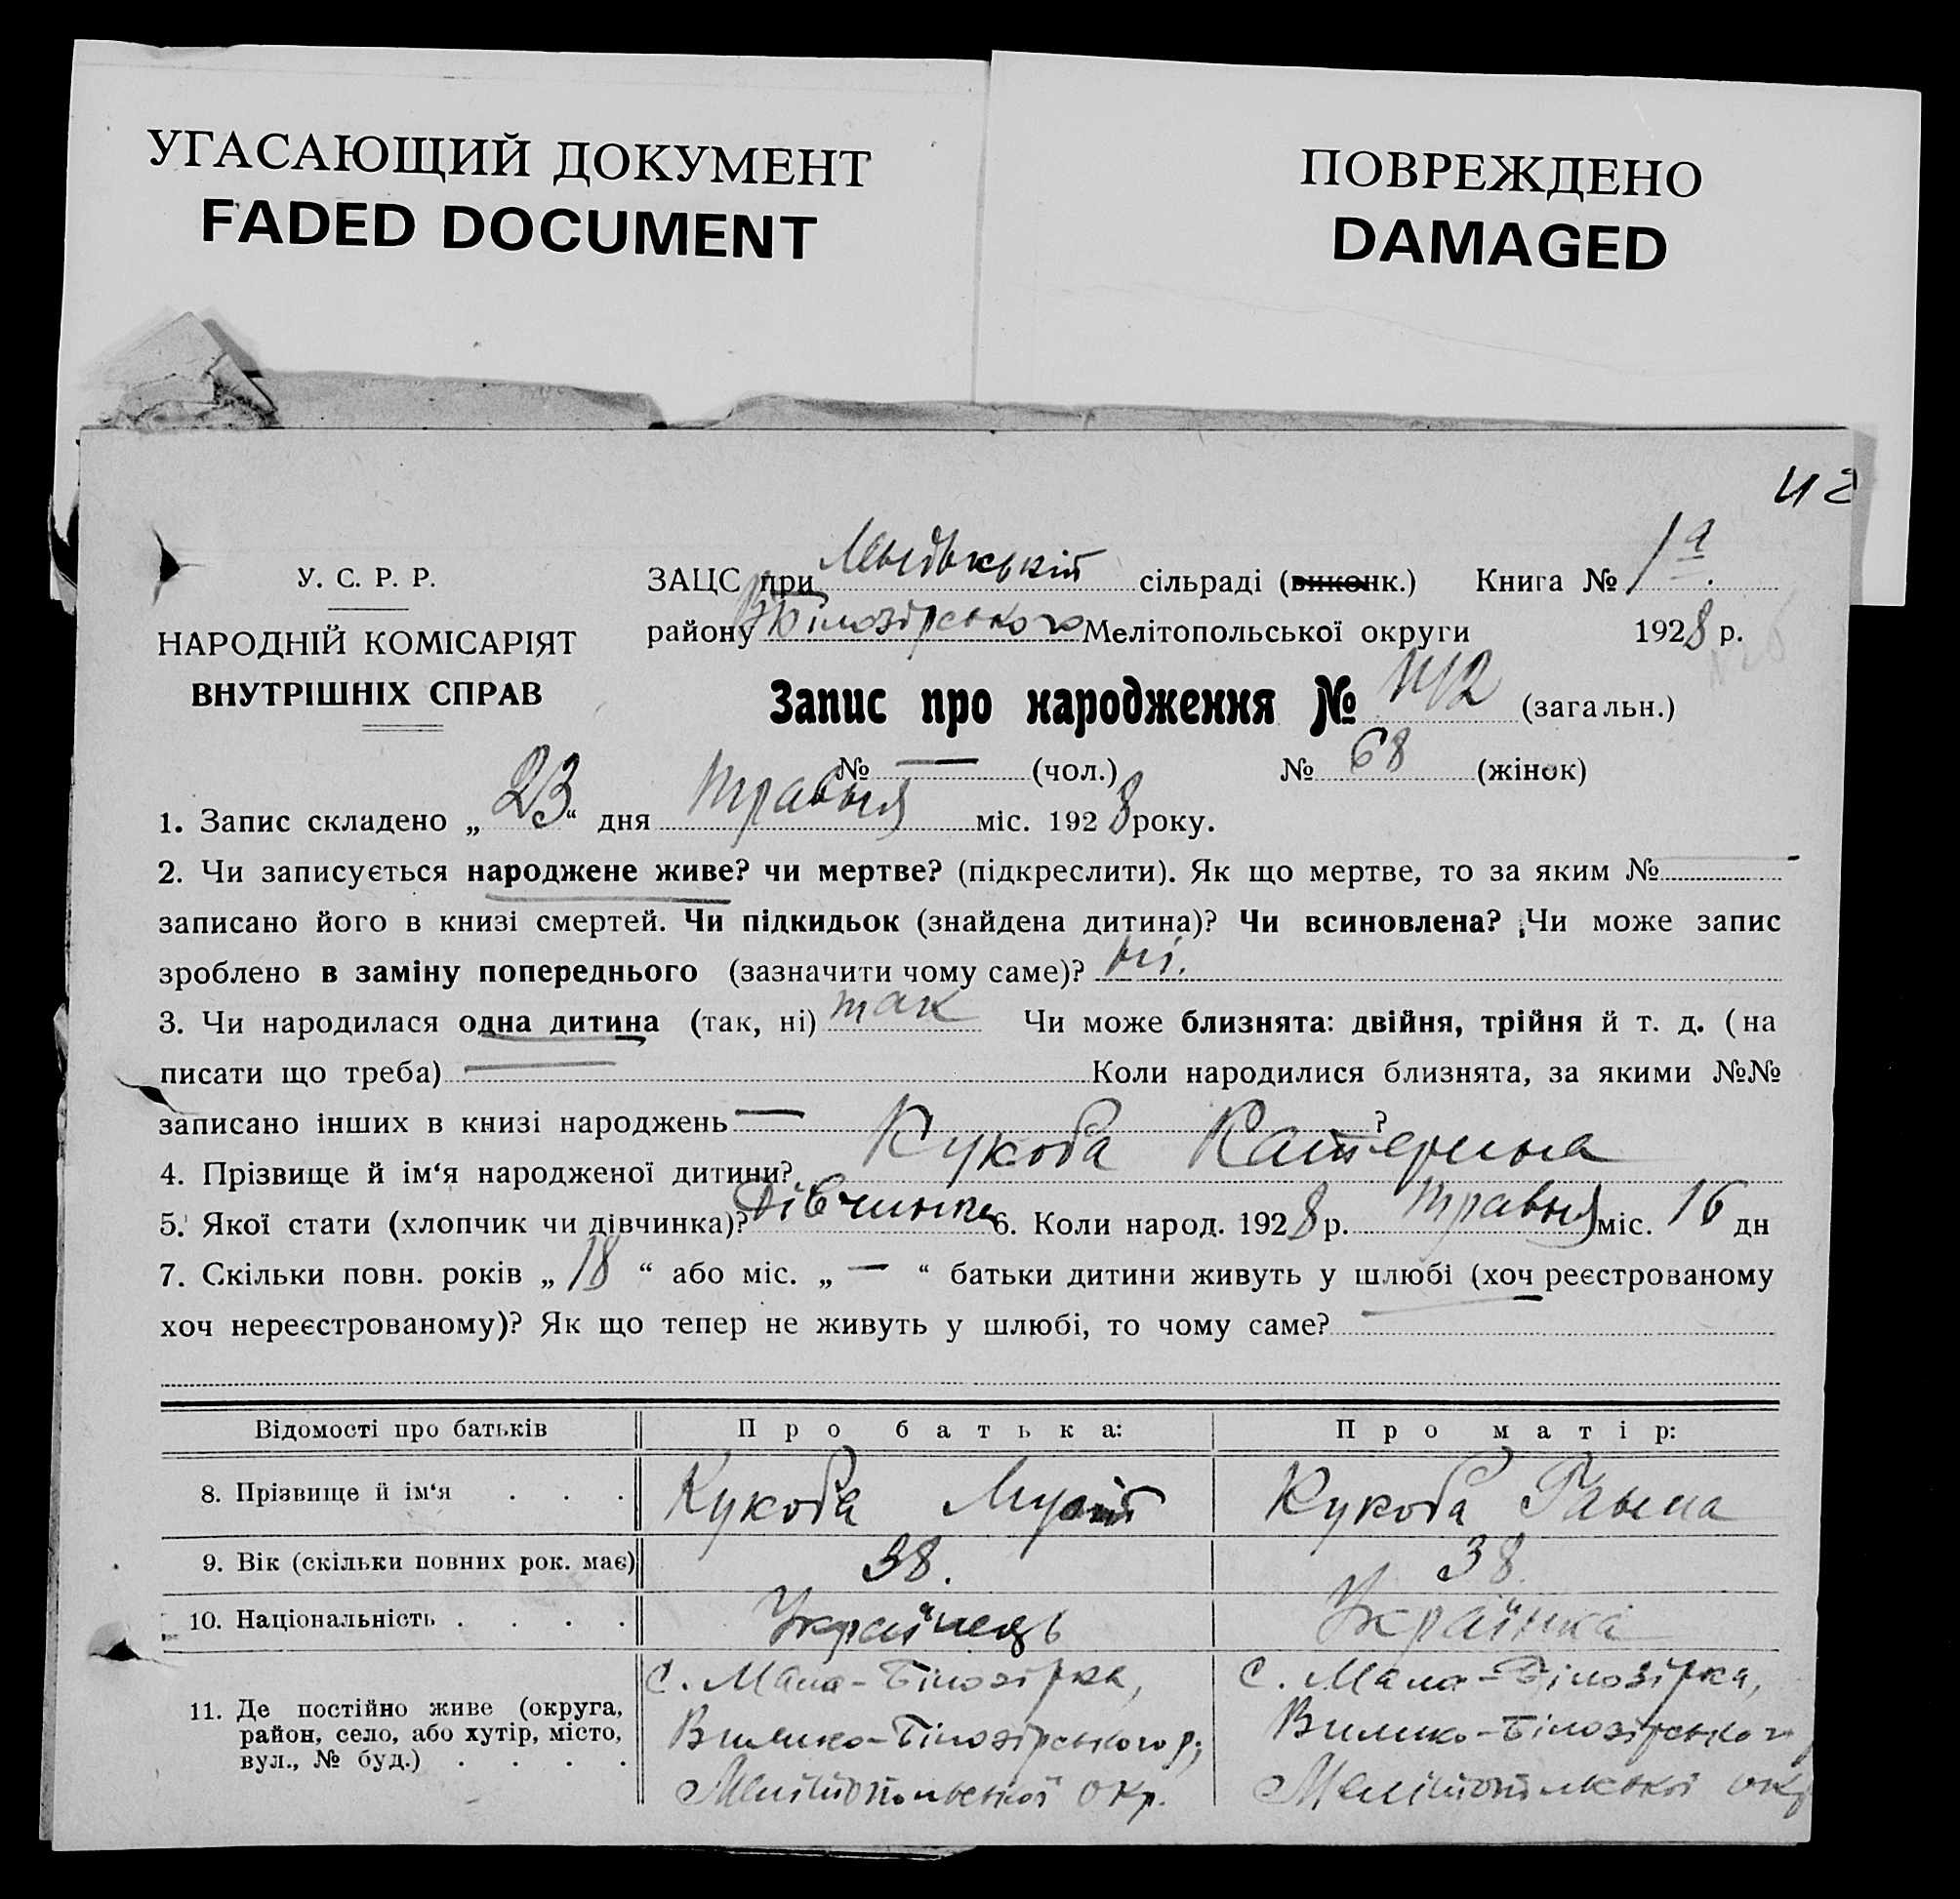 УГАСАЮЩИЙ ДОКУМЕНТ
FADED DOCUMENT
ПОВРЕЖДЕНО
DAMAGED
У. С. Р. Р.
НАРОДНІЙ КОМІСАРІЯТ
ВНУТРІШНІХ СПРАВ
ЗАЦС при сільраді (виконк.) Книга № 1а.
району В Білозірського Мелітопольської округи 1928 р.
Запис про народження № 112 (загальн.)
№ — (чол.) № 68 (жінок)
1. Запис складено „23“ дня травня міс. 1928 року.
2. Чи записується народжене живе? чи мертве? (підкреслити). Як що мертве, то за яким № —
записано його в книзі смертей. Чи підкидьок (знайдена дитина)? Чи всиновлена? Чи може запис
зроблено в заміну попереднього (зазначити чому саме)? ні.
3. Чи народилася одна дитина (так, ні) так Чи може близнята: двійня, трійня й т. д. (на
писати що треба) — Коли народилися близнята, за якими №№
записано інших в книзі народжень — ?
4. Прізвище й ім‘я народженої дитини? Кукоба Катерина
5. Якої стати (хлопчик чи дівчинка)? Дівчинка 6. Коли народ. 1928 р. травня міс. 16 дн
7. Скільки повн. років „18“ або міс. „—“ батьки дитини живуть у шлюбі (хоч реєстрованому
хоч нереєстрованому)? Як що тепер не живуть у шлюбі, то чому саме?
Відомості про батьків Про батька: Про матір:
8. Прізвище й ім‘я . . . Кукоба Кукоба Ганна
9. Вік (скільки повних рок. має) 38. 38.
10. Національність . . . . Українець Українка
11. Де постійно живе (округа,
район, село, або хутір, місто,
вул., № буд.) . . . .
С. Мала-Білозірка,
Вилико-Білозірського р;
Мелітопольської окр.
С. Мала-Білозірка,
Вилико-Білозірського
Мелітопольської окр